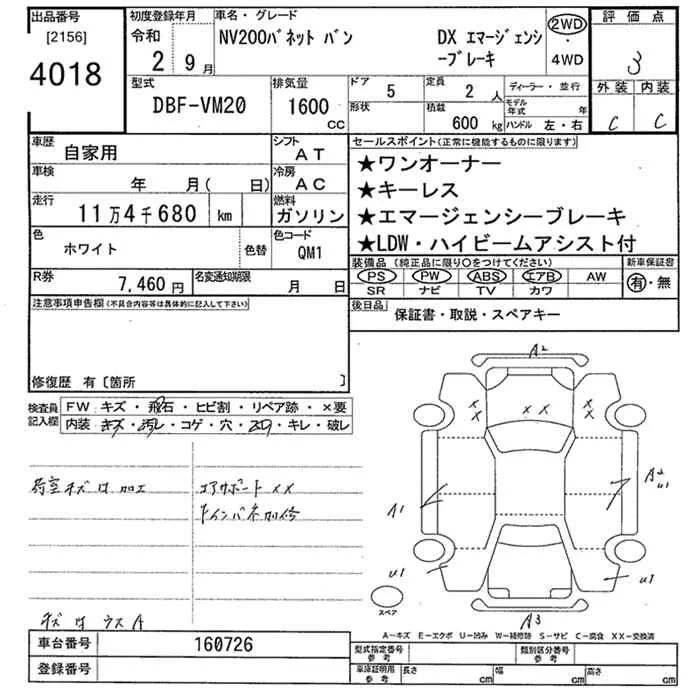 出品番号
[2156]
4018
初度登録年月
令和
2 9月
車名・グレード
NV200バネット バン DX エマージェンシ
ーブレーキ
2WD
・
4WD
評価点
3
外装 内装
C C
型式
DBF-VM20
排気量
1600
CC
ドア
5
定員
2 人
形状
積載
600 kg
ディーラー・並行
モデル年式 年
ハンドル 左・右
車歴
自家用
シフト
AT
車検
年 月( 日)
冷房
AC
走行
11万4千680 km
燃料
ガソリン
色
ホワイト
色替
色コード
QM1
R券
7,460 円
名変通知期限
月 日
セールスポイント(正常に機能するものに限ります)
★ワンオーナー
★キーレス
★エマージェンシーブレーキ
★LDW・ハイビームアシスト付
装備品 (純正品に限り○をつけてください)
新車保証書
PS PW ABS エアB AW
SR ナビ TV カワ
有・無
後日品
保証書・取説・スペアキー
注意事項申告欄(不具合内容等は具体的に記入して下さい)
修復歴 有〔箇所 〕
検査員
記入欄
FW キズ・飛石・ヒビ割・リペア跡・×要
内装 キズ・汚レ・コゲ・穴・スレ・キレ・破レ
荷室キズ凹加工
コアサポートXX
キズ凹ウスA
A2
XX
XX
XX
A1
A2
U1
U1
U1
A3
スペア
A−キズ E−エクボ U−凹み W−補修跡 S−サビ C−腐食 XX−交換済
車台番号
160726
登録番号
型式指定番号
参考
類別区分番号
参考
車庫証明用
参考
長さ cm
幅 cm
高さ cm